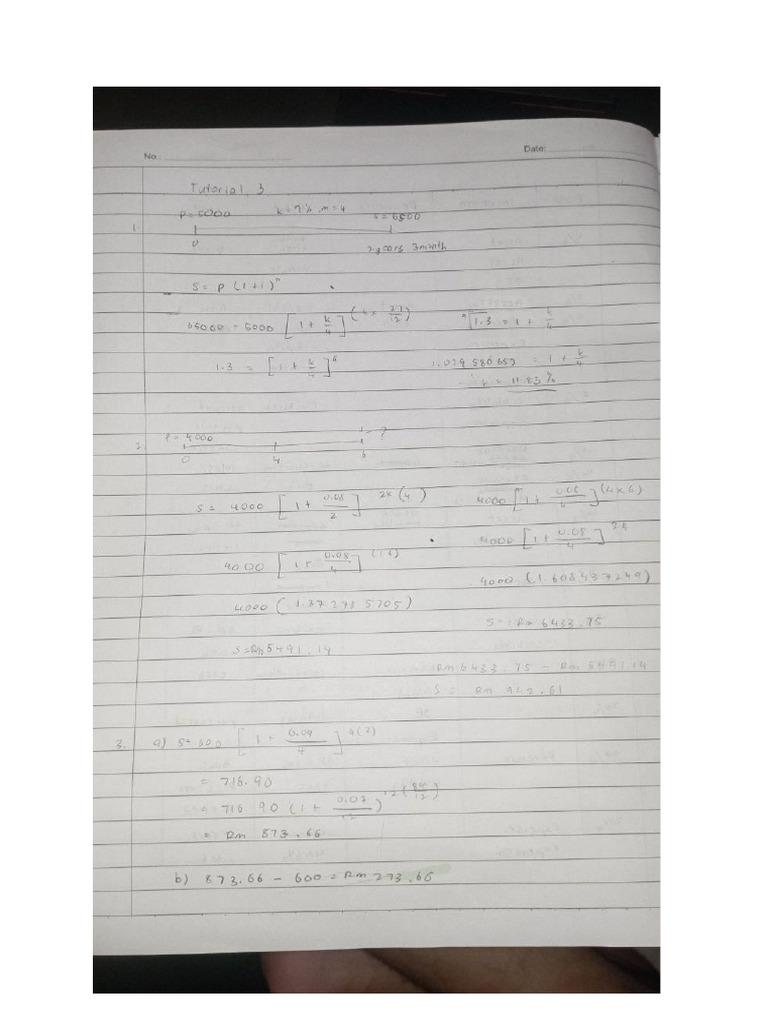 No.: Date:
Tutorial 3
P = 5000 k = ?% m = 4 s = 6500
1. 0 2 years 3 month
S = P (1+i)^n
65000 = 5000 [1 + k/4]^(4 × 27/12) ⁹√1.3 = 1 + k/4
1.3 = [1 + k/4]^9 1.029580657 = 1 + k/4
k = 11.83%
2. P = 4000 ?
0 4 6
S = 4000 [1 + 0.08/2]^2x(4) 4000 [1 + 0.08/4]^(4×6)
4000 [1 + 0.08/4]^(16) 4000 [1 + 0.08/4]^24
4000 (1.372785705) 4000 (1.608437249)
S = RM 5491.14 S = RM 6433.75
RM 6433.75 - RM 5491.14
S = RM 942.61
3. a) S = 600 [1 + 0.09/4]^4(2)
= 716.90
= 716.90 (1 + /12)^12( /12)
= RM 873.66
b) 873.66 - 600 = RM 273.66